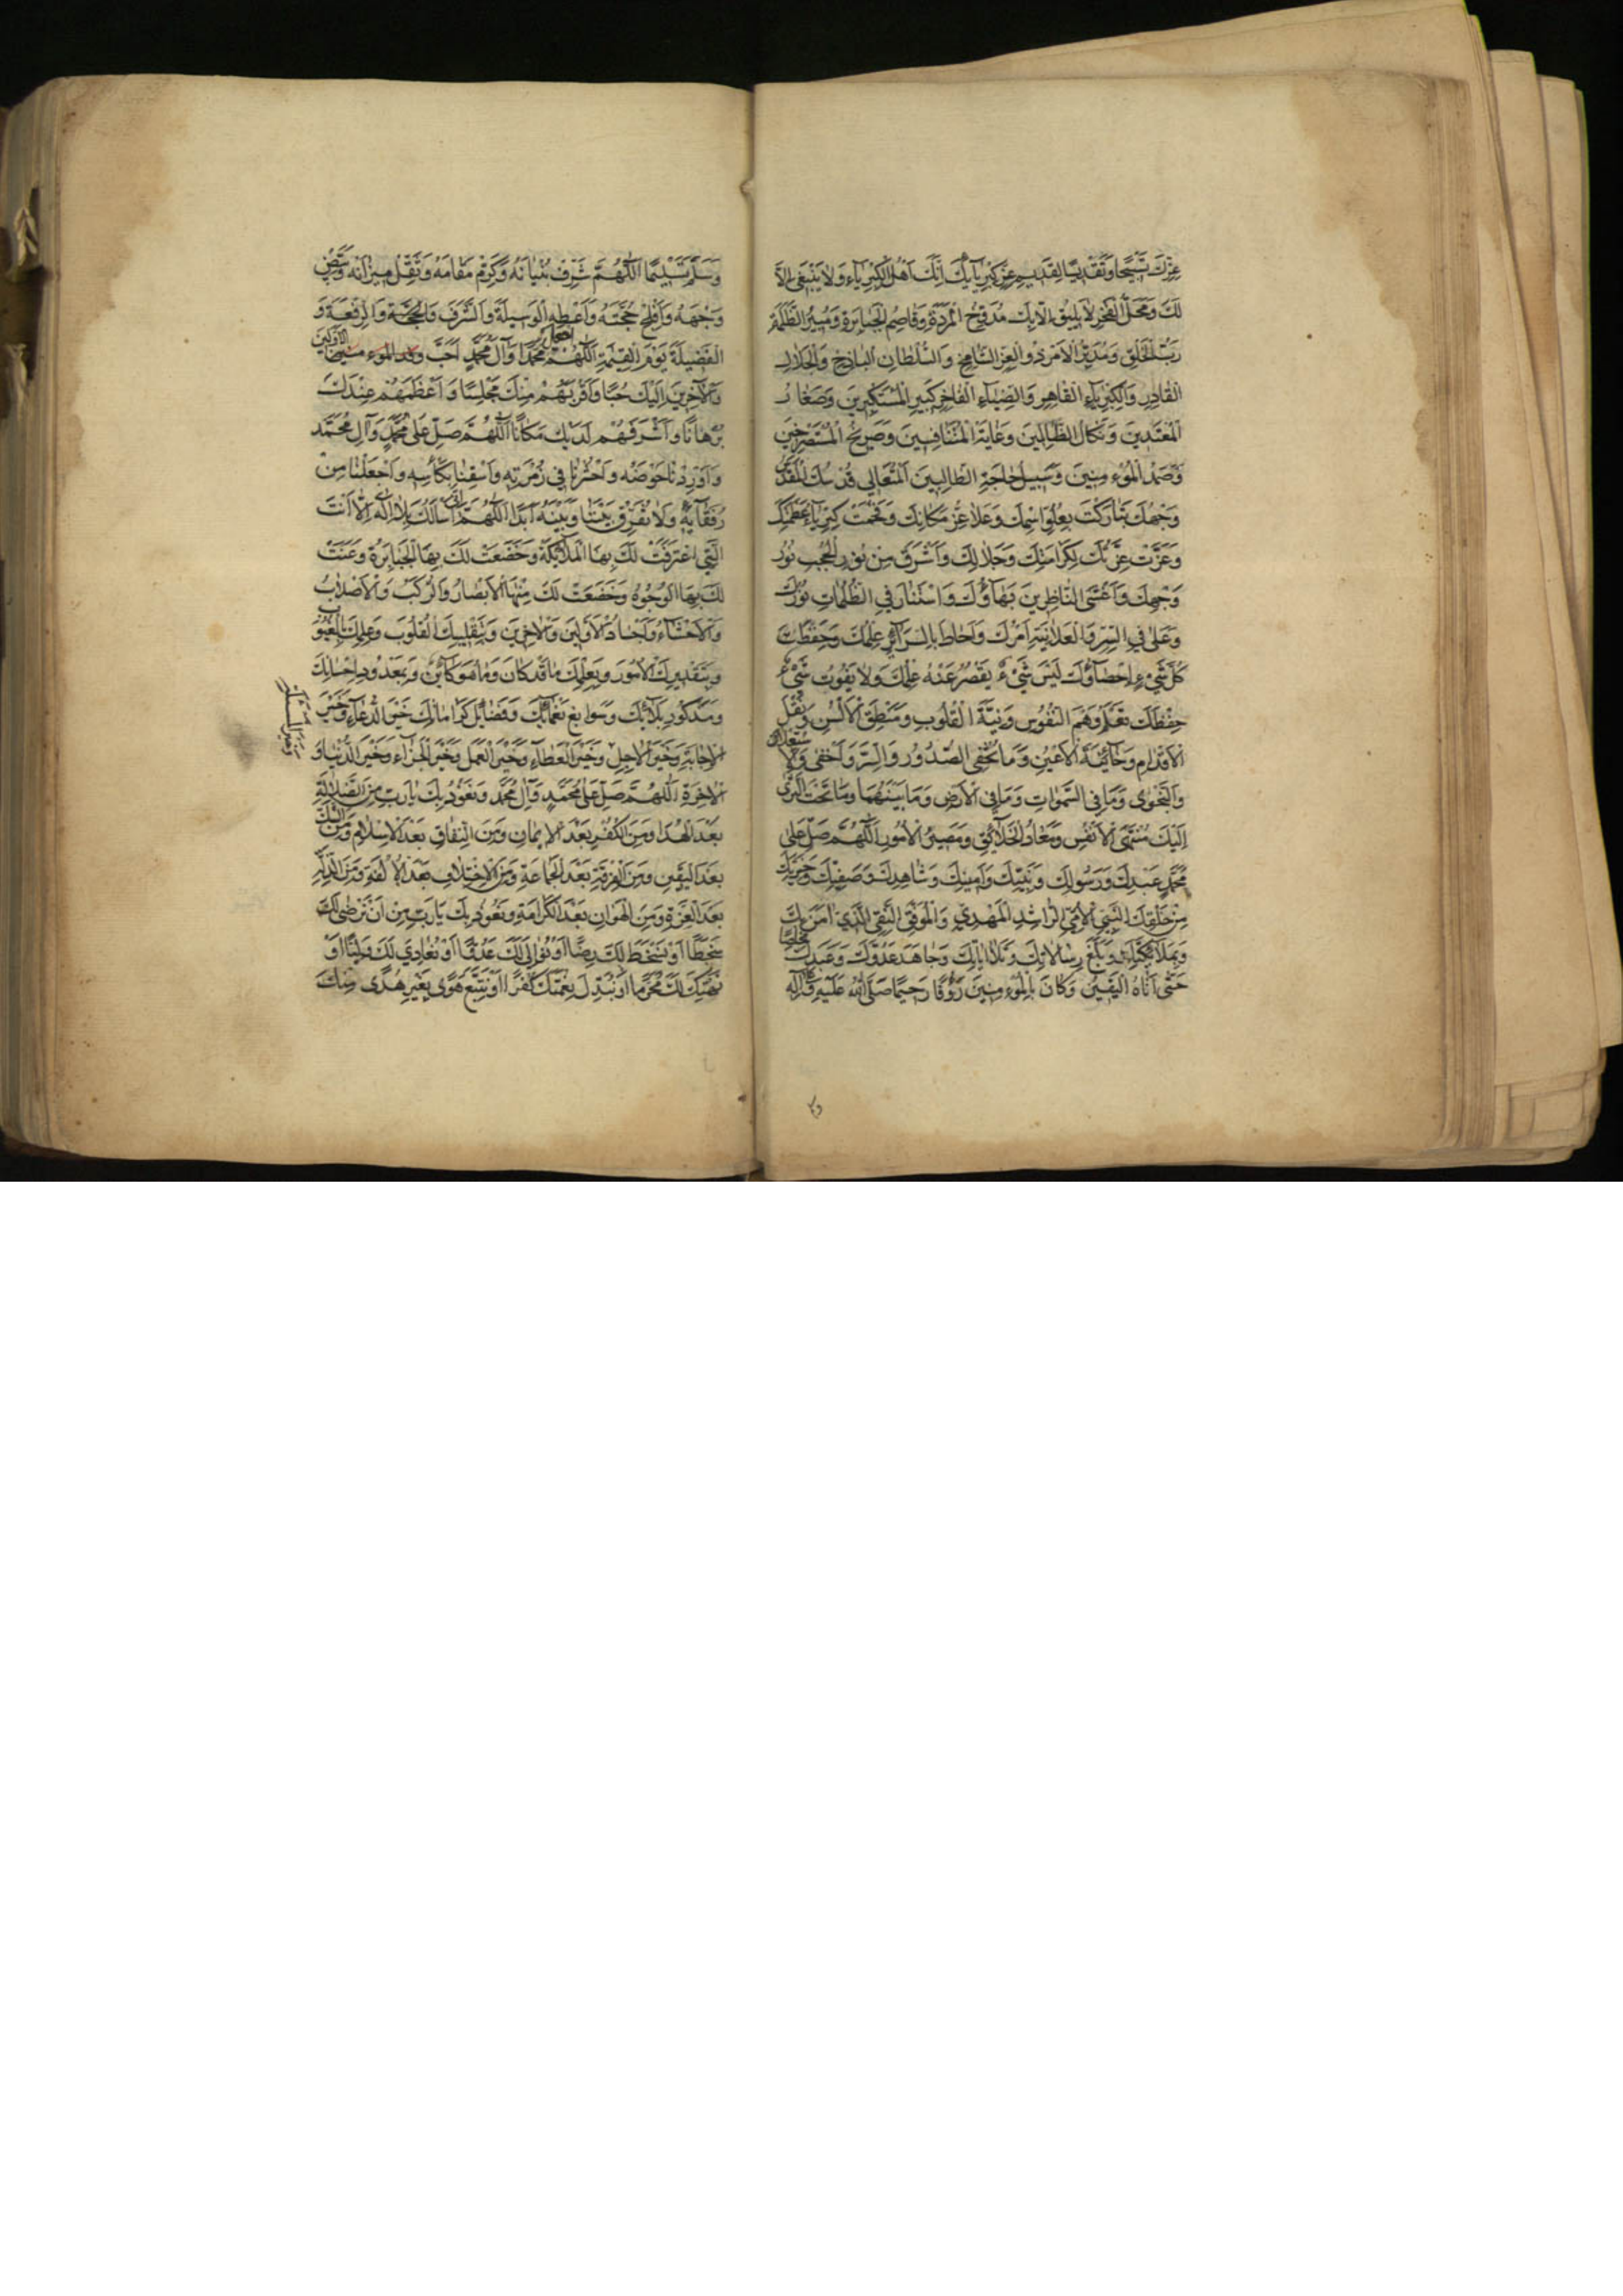 عِزِّكَ تَسْبِيحًا وَتَقْدِيسًا لِقَدِيمِ عِزِّ كِبْرِيَآئِكَ اِنَّكَ اَهْلُ الْكِبْرِيَآءِ وَلَا يَنْبَغِي اِلَّا
لَكَ وَمَحَلُّ الْفَخْرِ لَا يَلِيقُ اِلَّا بِكَ مُدَوِّخُ الْمَرَدَةِ وَقَاصِمُ الْجَبَابِرَةِ وَمُبِيرُ الظَّلَمَةِ
رَبُّ الْخَلْقِ وَمُدَبِّرُ الْاَمْرِ ذُو الْعِزِّ الشَّامِخِ وَالسُّلْطَانِ الْبَاذِخِ وَالْجَلَالِ
الْقَادِرِ وَالْكِبْرِيَآءِ الْقَاهِرِ وَالضِّيَآءِ الْفَاخِرِ كَبِيرُ الْمُسْتَكْبِرِينَ وَصَغَارُ
الْمُعْتَدِينَ وَنَكَالُ الظَّالِمِينَ وَغَايَةُ الْمُتَنَافِسِينَ وَصَرِيخُ الْمُسْتَصْرِخِينَ
وَصَمَدُ الْمُؤْمِنِينَ وَسَبِيلُ حَاجَةِ الطَّالِبِينَ الْمُتَعَالِي قُدْسُكَ الْمُقَدَّسُ
وَجْهُكَ تَبَارَكْتَ بِعُلُوِّ اسْمِكَ وَعَلَا عِزُّ مَكَانِكَ وَفَخُمَتْ كِبْرِيَآءُ عَظَمَتِكَ
وَعَزَّتْ عِزَّتُكَ لِكَرَامَتِكَ وَجَلَالِكَ وَاَشْرَقَ مِنْ نُورِ الْحُجُبِ نُورُ
وَجْهِكَ وَاَغْشَى النَّاظِرِينَ بَهَآؤُكَ وَاسْتَنَارَ فِي الظُّلُمَاتِ نُورُكَ
وَعَلَى فِي السِّرِّ وَالْعَلَانِيَةِ اَمْرُكَ وَاَحَاطَ بِالسَّرَآئِرِ عِلْمُكَ وَحَفِظَتْ
كُلَّ شَيْءٍ اِحْصَآؤُكَ لَيْسَ شَيْءٌ يَقْصُرُ عَنْهُ عِلْمُكَ وَلَا يَفُوتُ شَيْءٌ
حِفْظَكَ تَعْلَمُ وَهْمَ النُّفُوسِ وَنِيَّةَ الْقُلُوبِ وَمَنْطِقَ الْاَلْسُنِ وَنَقْلَ
الْاَقْدَامِ وَخَآئِنَةَ الْاَعْيُنِ وَمَا تُخْفِي الصُّدُورُ وَالسِّرَّ وَاَخْفَى وَالْاِسْتِعْلَانَ
وَالنَّجْوَى وَمَا فِي السَّمَوَاتِ وَمَا فِي الْاَرْضِ وَمَا بَيْنَهُمَا وَمَا تَحْتَ الثَّرَى
اِلَيْكَ مُنْتَهَى الْاَنْفُسِ وَمَعَادُ الْخَلَآئِقِ وَمَصِيرُ الْاُمُورِ اَللَّهُمَّ صَلِّ عَلَى
مُحَمَّدٍ عَبْدِكَ وَرَسُولِكَ وَنَبِيِّكَ وَاَمِينِكَ وَشَاهِدِكَ وَصَفِيِّكَ وَخِيَرَتِكَ
مِنْ خَلْقِكَ النَّبِيِّ الْاُمِّيِّ الرَّاشِدِ الْمَهْدِيِّ وَالْمُوَفَّقِ التَّقِيِّ الَّذِي اٰمَنَ بِكَ
وَبِمَلَآئِكَتِكَ وَبَلَّغَ رِسَالَاتِكَ وَتَلَا اٰيَاتِكَ وَجَاهَدَ عَدُوَّكَ وَعَبَدَكَ مُخْلِصًا
حَتَّى اَتَاهُ الْيَقِينُ وَكَانَ بِالْمُؤْمِنِينَ رَؤُفًا رَحِيمًا صَلَّى اللهُ عَلَيْهِ وَاٰلِهِ
وَسَلَّمَ تَسْلِيمًا اَللَّهُمَّ شَرِّفْ بُنْيَانَهُ وَكَرِّمْ مَقَامَهُ وَثَقِّلْ مِيزَانَهُ وَبَيِّضْ
وَجْهَهُ وَاَفْلِحْ حُجَّتَهُ وَاَعْطِهِ الْوَسِيلَةَ وَالشَّرَفَ وَالْمَحَبَّةَ وَالرِّفْعَةَ وَ
الْفَضِيلَةَ يَوْمَ الْقِيٰمَةِ اَللَّهُمَّ اجْعَلْ مُحَمَّدًا وَاٰلَ مُحَمَّدٍ اَحَبَّ الْاَوَّلِينَ
وَالْاٰخِرِينَ اِلَيْكَ حُبًّا وَاَقْرَبَهُمْ مِنْكَ مَجْلِسًا وَاَعْظَمَهُمْ عِنْدَكَ
بُرْهَانًا وَاَشْرَفَهُمْ لَدَيْكَ مَكَانًا اَللَّهُمَّ صَلِّ عَلَى مُحَمَّدٍ وَاٰلِ مُحَمَّدٍ
وَاَوْرِدْنَا حَوْضَهُ وَاحْشُرْنَا فِي زُمْرَتِهِ وَاسْقِنَا بِكَأْسِهِ وَاجْعَلْنَا مِنْ
رُفَقَآئِهِ وَلَا تُفَرِّقْ بَيْنَنَا وَبَيْنَهُ اَبَدًا اَللَّهُمَّ اِنِّي اَسْأَلُكَ بِلَا اِلٰهَ اِلَّا اَنْتَ
الَّتِي اعْتَرَفَتْ لَكَ بِهَا الْمَلَآئِكَةُ وَخَضَعَتْ لَكَ بِهَا الْجَبَابِرَةُ وَعَنَتْ
لَكَ بِهَا الْوُجُوهُ وَخَضَعَتْ لَكَ مِنْهَا الْاَبْصَارُ وَالرُّكَبُ وَالْاَصْلَابُ
وَالْاَحْشَآءُ وَاَجْسَادُ الْاَوَّلِينَ وَالْاٰخِرِينَ وَبِتَقْلِيبِكَ الْقُلُوبَ وَعِلْمِكَ بِالْغُيُوبِ
وَبِتَقْدِيرِكَ الْاُمُورَ وَبِعِلْمِكَ مَا قَدْ كَانَ وَمَا هُوَ كَآئِنٌ وَبِمَعْدُودِ اِحْسَانِكَ
وَمَذْكُورِ بَلَآئِكَ وَسَوَابِغِ نَعْمَآئِكَ وَفَضَآئِلِ كَرَامَاتِكَ خَيْرَ الدُّعَآءِ وَخَيْرَ
الْاِجَابَةِ وَخَيْرَ الْاَجَلِ وَخَيْرَ الْعَطَآءِ وَخَيْرَ الْعَمَلِ وَخَيْرَ الْجَزَآءِ وَخَيْرَ الدُّنْيَا وَ
الْاٰخِرَةِ اَللَّهُمَّ صَلِّ عَلَى مُحَمَّدٍ وَاٰلِ مُحَمَّدٍ وَنَعُوذُ بِكَ يَا رَبِّ مِنَ الضَّلَالَةِ
بَعْدَ الْهُدَا وَمِنَ الْكُفْرِ بَعْدَ الْاِيمَانِ وَمِنَ النِّفَاقِ بَعْدَ الْاِسْلَامِ وَمِنَ الشَّكِّ
بَعْدَ الْيَقِينِ وَمِنَ الْفُرْقَةِ بَعْدَ الْجَمَاعَةِ وَمِنَ الْاِخْتِلَافِ بَعْدَ الْاُلْفَةِ وَمِنَ الذِّلَّةِ
بَعْدَ الْعِزَّةِ وَمِنَ الْهَوَانِ بَعْدَ الْكَرَامَةِ وَنَعُوذُ بِكَ يَا رَبِّ مِنْ اَنْ نَرْضَى لَكَ
سَخَطًا اَوْ نَسْخَطَ لَكَ رِضًا اَوْ نُوَالِيَ لَكَ عَدُوًّا اَوْ نُعَادِيَ لَكَ وَلِيًّا اَوْ
نَنْتَهِكَ لَكَ مُحَرَّمًا اَوْ نُبَدِّلَ نِعْمَتَكَ كُفْرًا اَوْ نَتَّبِعَ هَوًى بِغَيْرِ هُدًى مِنْكَ